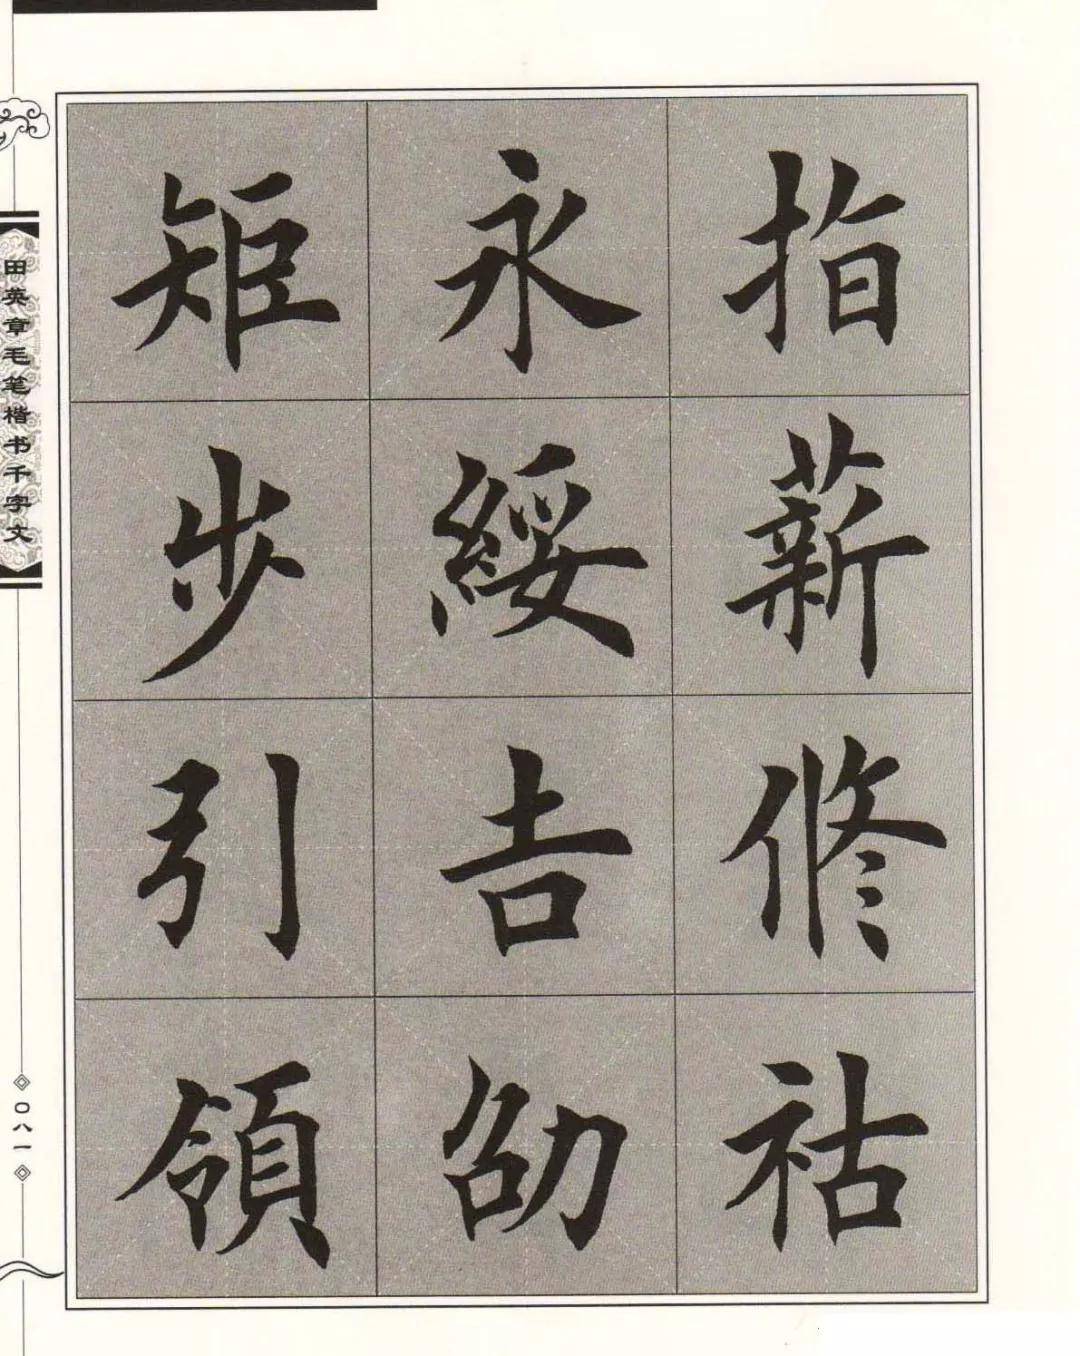 指薪修祜
永綏吉劭
矩步引領
田英章毛笔楷书千字文
〇八一